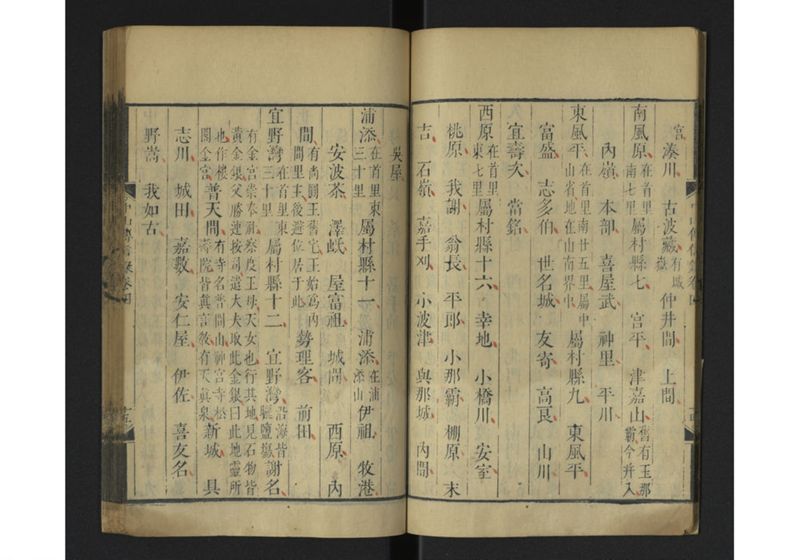 宮 湊川 古波藏 有城嶽 仲井間 上間
南風原 在首里南七里 屬村縣七 宮平 津嘉山 舊有玉那霸今并入
內嶺 本部 喜屋武 神里 平川
東風平 在首里南廿五里屬中山省地在山南界中 屬村縣九 東風平
富盛 志多伯 世名城 友寄 高良 山川
宜壽次 當銘
西原 在首里東七里 屬村縣十六 幸地 小橋川 安室
桃原 我謝 翁長 平郎 小那霸 棚原 末
吉 石嶺 嘉手刈 小波津 與那城 內間
吳屋
浦添 在首里東三十里 屬村縣十一 浦添 在浦添山 伊祖 牧港
安波茶 澤岻 屋富祖 城間 西原 內
間 有尚圓王舊宅王始為內間里主後避位居于此 勢理客 前田
宜野灣 在首里東三十里 屬村縣十二 宜野灣 沿海皆曬鹽嶽 謝名
有金宮崇奉祖察度王母天女也行其地見石物皆
黃金銀父勝連按司遣大夫取此金銀曰此地靈所
也作樓閣金宮 普天間 有寺名普門山神宮寺松壽院皆真言教有天真泉 新城 具
志川 城田 嘉數 安仁屋 伊佐 喜友名
野嵩 我如古